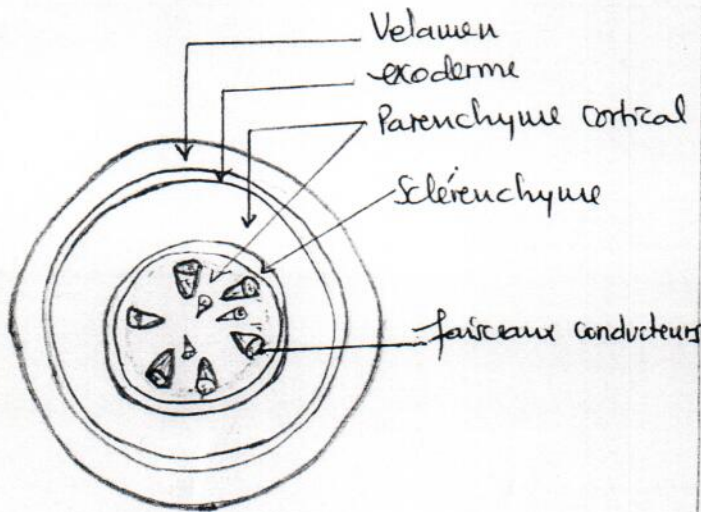 Velamen
exoderme
Parenchyme cortical
Sclérenchyme
faisceaux conducteurs